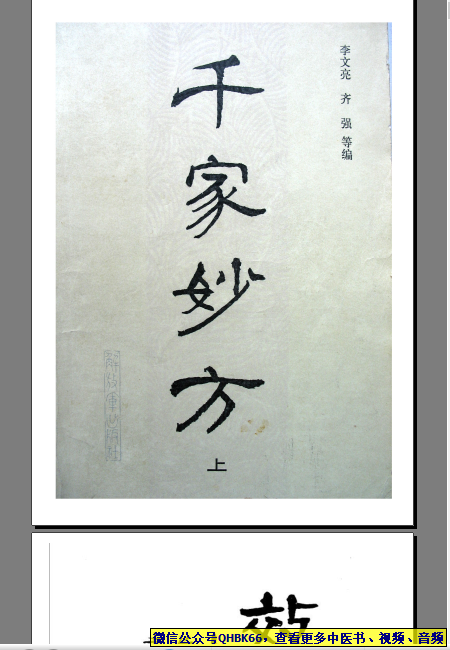 李文亮 齐强等编
千家妙方
上
解放军出版社
效
微信公众号QHBK66，查看更多中医书、视频、音频